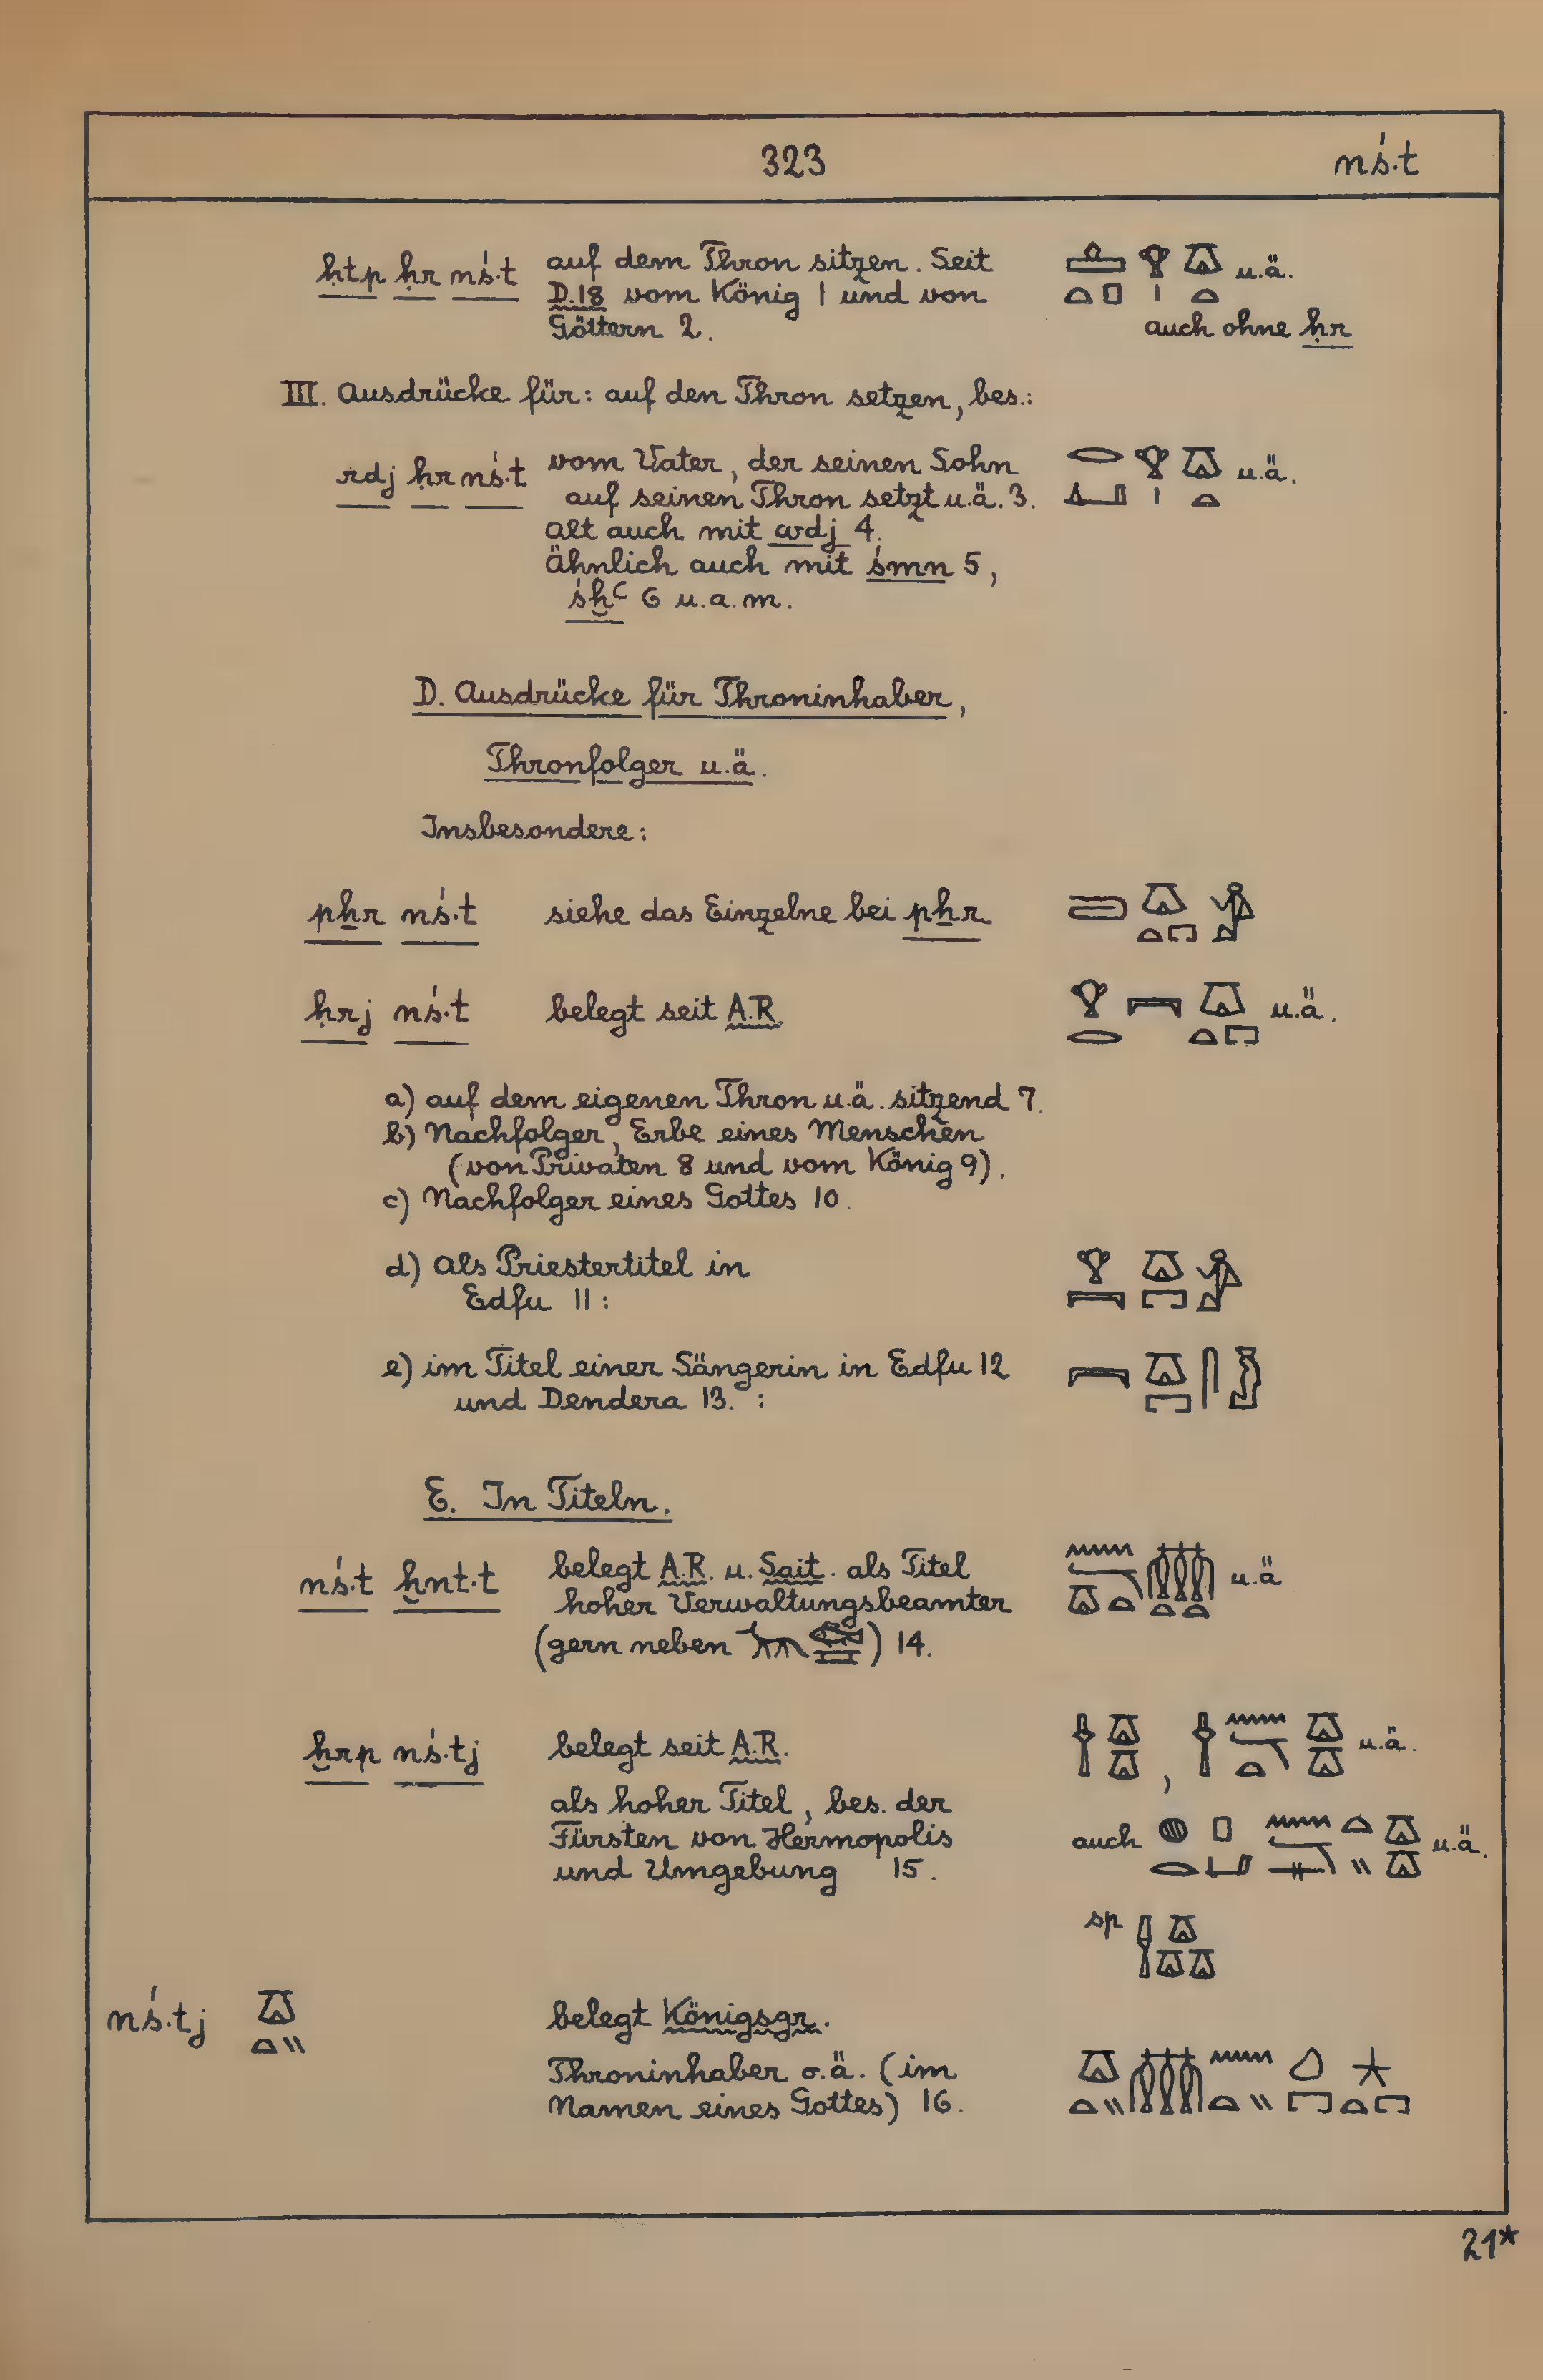 323 nś.t
ḥtp ḥr nś.t auf dem Thron sitzen. Seit u.ä.
D.18 vom König 1 und von
Göttern 2. auch ohne ḥr
III. Ausdrücke für: auf den Thron setzen, bes.:
rdj ḥr nś.t vom Vater, der seinen Sohn u.ä.
auf seinen Thron setzt u.ä. 3.
alt auch mit wdj 4.
ähnlich auch mit śmn 5,
śḫꜥ 6 u.a.m.
D. Ausdrücke für Throninhaber,
Thronfolger u.ä.
Insbesondere:
pẖr nś.t siehe das Einzelne bei pẖr
ḥrj nś.t belegt seit A.R. u.ä.
a) auf dem eigenen Thron u.ä. sitzend 7.
b) Nachfolger, Erbe eines Menschen
(von Privaten 8 und vom König 9).
c) Nachfolger eines Gottes 10.
d) als Priestertitel in
Edfu 11:
e) im Titel einer Sängerin in Edfu 12
und Dendera 13. :
E. In Titeln.
nś.t ḫnt.t belegt A.R. u. Sait. als Titel u.ä
hoher Verwaltungsbeamter
(gern neben ) 14.
ḫrp nś.tj belegt seit A.R. , u.ä.
als hoher Titel, bes. der
Fürsten von Hermopolis auch u.ä.
und Umgebung 15.
sp
nś.tj belegt Königsgr.
Throninhaber o.ä. (im
Namen eines Gottes) 16.
21*